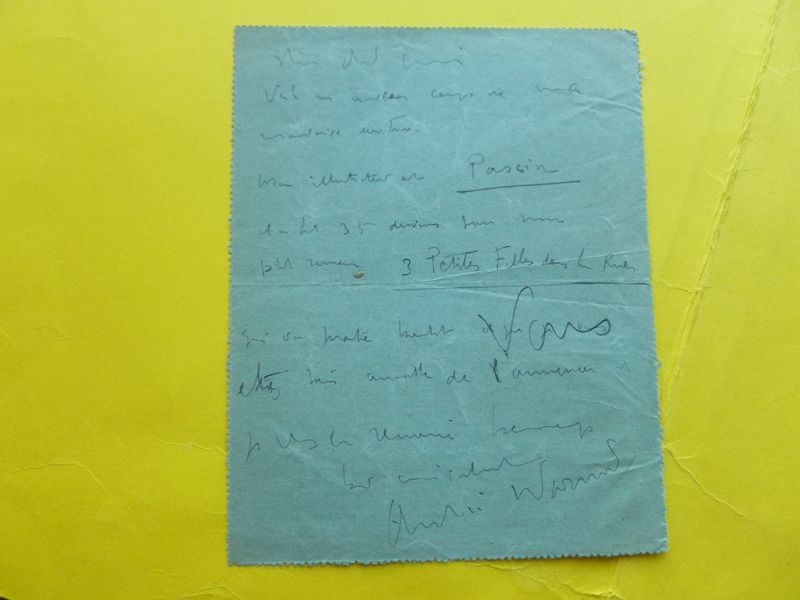 mon cher ami
Voici un nouveau de
mauvaise écriture.
mon illustrateur est Pascin
a fait 35 dessins pour mon
petit roman 3 Petites Filles dans la Rue
qui va paraître bientôt Vous
êtes très aimable de l'annoncer
je vous en remercie beaucoup
André Warnod